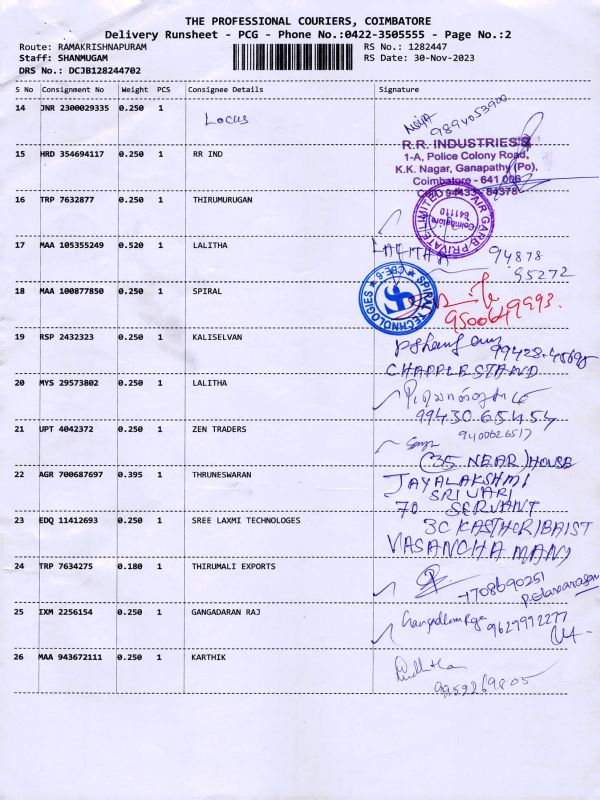 THE PROFESSIONAL COURIERS, COIMBATORE
Delivery Runsheet - PCG - Phone No.:0422-3505555 - Page No.:2
Route: RAMAKRISHNAPURAM RS No.: 1282447
Staff: SHANMUGAM RS Date: 30-Nov-2023
DRS No.: DCJB128244702
S No Consignment No Weight PCS Consignee Details Signature
14 JNR 2300029335 0.250 1 Locus
9894053900
15 HRD 354694117 0.250 1 RR IND
R.R. INDUSTRIES
1-A, Police Colony Road,
K.K. Nagar, Ganapathy (Po),
Coimbatore - 641 006
94433 - 84378
16 TRP 7632877 0.250 1 THIRUMURUGAN
GARB PRIVATE LIMITED
Coimbatore
641110
17 MAA 105355249 0.520 1 LALITHA
LALITHA 94878
95272
18 MAA 100877850 0.250 1 SPIRAL
SPIRAL TECHNOLOGIES CBE-6
9500649993.
19 RSP 2432323 0.250 1 KALISELVAN
CHAPPLE STAND
20 MYS 29573802 0.250 1 LALITHA
99430 65454
21 UPT 4042372 0.250 1 ZEN TRADERS
9400626517
22 AGR 700687697 0.395 1 THRUNESWARAN
(35 NEAR) HOUSE
JAYALAKSHMI
SRIVARI
70 SERVANT
23 EDQ 11412693 0.250 1 SREE LAXMI TECHNOLOGES
3C
VASANCHAMANI
24 TRP 7634275 0.180 1 THIRUMALI EXPORTS
1708690251
25 IXM 2256154 0.250 1 GANGADARAN RAJ
9629992277
26 MAA 943672111 0.250 1 KARTHIK
9952269805